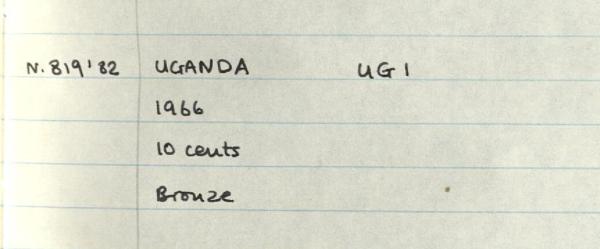 N. 819'82 UGANDA UG 1
1966
10 cents
Bronze